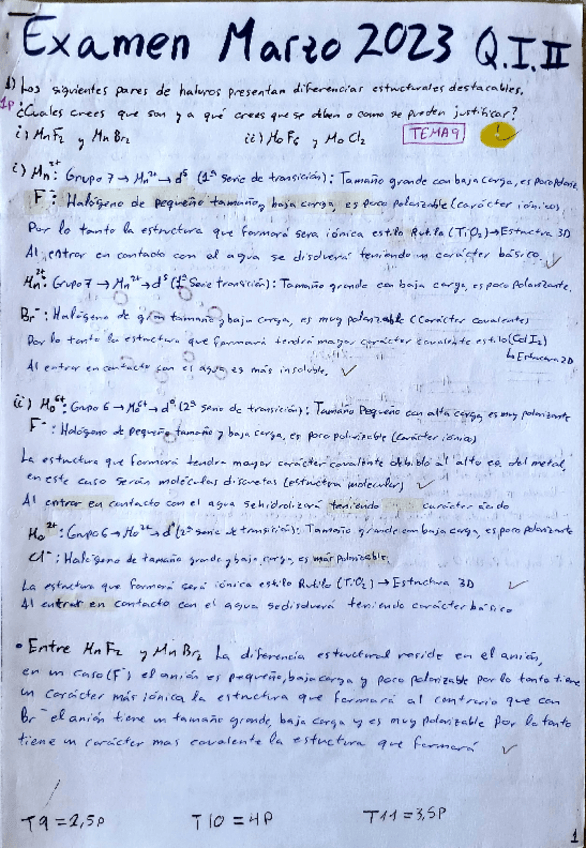 Examen Marzo 2023 Q.I.II
1) Los siguientes pares de haluros presentan diferencias estructurales destacables,
1p
¿Cuales crees que son y a qué crees que se deben o como se pueden justificar?
i) MnF2 y MnBr2 ii) MoF6 y MoCl2 TEMA9 !
i) Mn2+: Grupo 7 → Mn2+ → d5 (1ª serie de transición): Tamaño grande con baja carga, es poco
F-: Halógeno de pequeño tamaño y baja carga, es poco polarizable (carácter iónico)
Por lo tanto la estructura que formará sera iónica estilo Rutilo (TiO2) → Estructura 3D
Al entrar en contacto con el agua se disolverá teniendo un carácter básico. ✓
Mn2+: Grupo 7 → Mn2+ → d5 (1ª Serie transición): Tamaño grande con baja carga, es poco polarizante.
Br-: Halógeno de gran tamaño y baja carga, es muy polarizable (Carácter covalente)
Por lo tanto la estructura que formará tendrá mayor carácter covalente estilo (CdI2)
↳ Estructura 2D
Al entrar en contacto con el agua es más insoluble, ✓
ii) Mo6+: Grupo 6 → Mo6+ → d0 (2ª serie de transición): Tamaño Pequeño con alta carga, es muy polarizante
F-: Halógeno de pequeño tamaño y baja carga, es poco polarizable (carácter iónico)
La estructura que formará tendra mayor carácter covalente debido al alto e.o. del metal,
en este caso serán moléculas discretas (estructura molecular) ✓
Al entrar en contacto con el agua se hidrolizará teniendo carácter ácido
Mo2+: Grupo 6 → Mo2+ → (2ª serie de transición): Tamaño grande con baja carga, es poco polarizante
Cl-: Halógeno de tamaño grande y baja carga, es más polarizable.
La estructura que formará será iónica estilo Rutilo (TiO2) → Estructura 3D ✓
Al entrar en contacto con el agua se disolverá teniendo carácter básico
• Entre MnF2 y MnBr2 La diferencia estructural reside en el anión,
en un caso (F-) el anión es pequeño, baja carga y poco polarizable por lo tanto tiene
un carácter más iónica la estructura que formará al contrario que con
Br- el anión tiene un tamaño grande, baja carga y es muy polarizable Por lo tanto
tiene un carácter mas covalente la estuctura que formará ✓
T9 = 2,5p T10 = 4p T11 = 3,5p
1